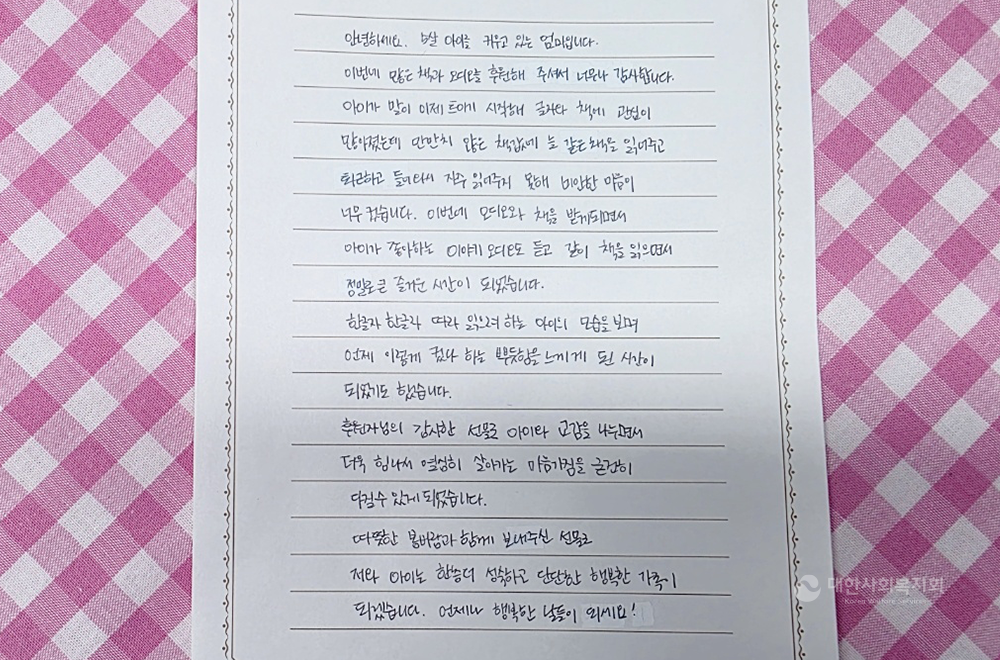 안녕하세요. 5살 아이를 키우고 있는 엄마입니다.
이번에 많은 책과 오디오를 후원해 주셔서 너무나 감사합니다.
아이가 말이 이제 트이기 시작해 글자와 책에 관심이
많아졌는데 만만치 않은 책값에 늘 같은 책을 읽어주고
퇴근하고 들어와서 자주 읽어주지 못해 미안한 마음이
너무 컸습니다. 이번에 오디오와 책을 받게되면서
아이가 좋아하는 이야기 오디오도 듣고 같이 책을 읽으면서
정말로 큰 즐거운 시간이 되었습니다.
한글자 한글자 따라 읽으려 하는 아이의 모습을 보며
언제 이렇게 컸나 하는 뿌듯함을 느끼게 된 시간이
되었기도 했습니다.
후원자님의 감사한 선물로 아이와 교감을 나누면서
더욱 힘나서 열심히 살아가는 마음가짐을 굳건히
다질수 있게 되었습니다.
따뜻한 봄바람과 함께 보내주신 선물로
저와 아이는 한층더 성숙하고 단단한 행복한 가족이
되겠습니다. 언제나 행복한 날들이 되세요!
대한사회복지회
Korea Welfare Services